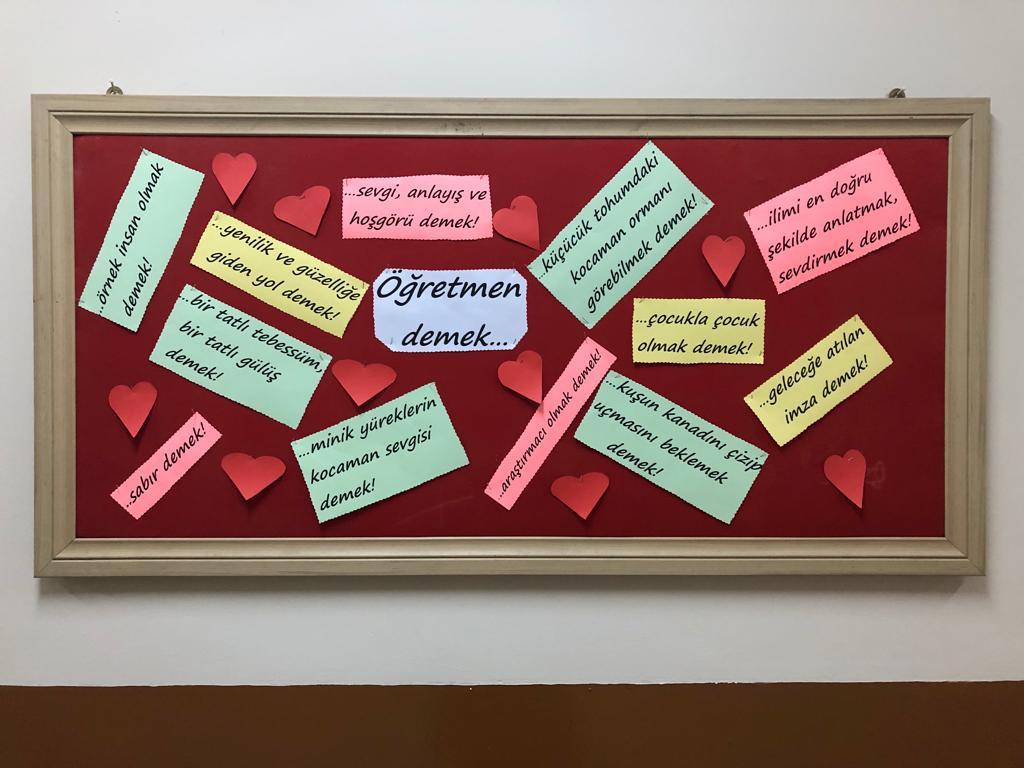 Öğretmen
demek...
...örnek insan olmak
demek!
...yenilik ve güzelliğe
giden yol demek!
...bir tatlı tebessüm,
bir tatlı gülüş
demek!
..sabır demek!
...minik yüreklerin
kocaman sevgisi
demek!
...sevgi, anlayış ve
hoşgörü demek!
...küçücük tohumdaki
kocaman ormanı
görebilmek demek!
...araştırmacı olmak demek!
...kuşun kanadını çizip
uçmasını beklemek
demek!
...çocukla çocuk
olmak demek!
...ilimi en doğru
şekilde anlatmak,
sevdirmek demek!
...geleceğe atılan
imza demek!